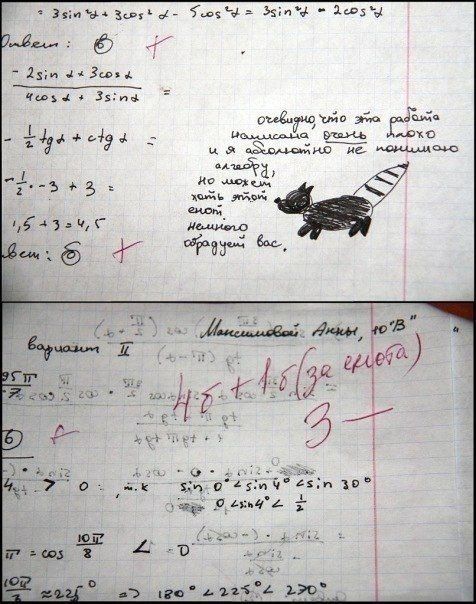 = 3sin²α + 3cos²α - 5cos²α = 3sin²α - 2cos²α
Ответ: в +
- 2sinα + 3cosα
4cosα + 3sinα
=
- 1/2 tgα + ctgα =
- 1/2 · -3 + 3 =
1,5 + 3 = 4,5
вет: б +
очевидно, что эта работа
написана очень плохо
и я абсолютно не понимаю
алгебру,
но может
хоть этот
енот
немного
обрадует вас.
Максимовой Анны, 10 "В"
вариант II
95π
4б + 1б (за енота)
3 —
б
4 > 0, т.к sin 0° < sin 4° < sin 30°
0 < sin 4° < 1/2
π = cos 10π/8 < 0
≈ 225° => 180° < 225° < 270°